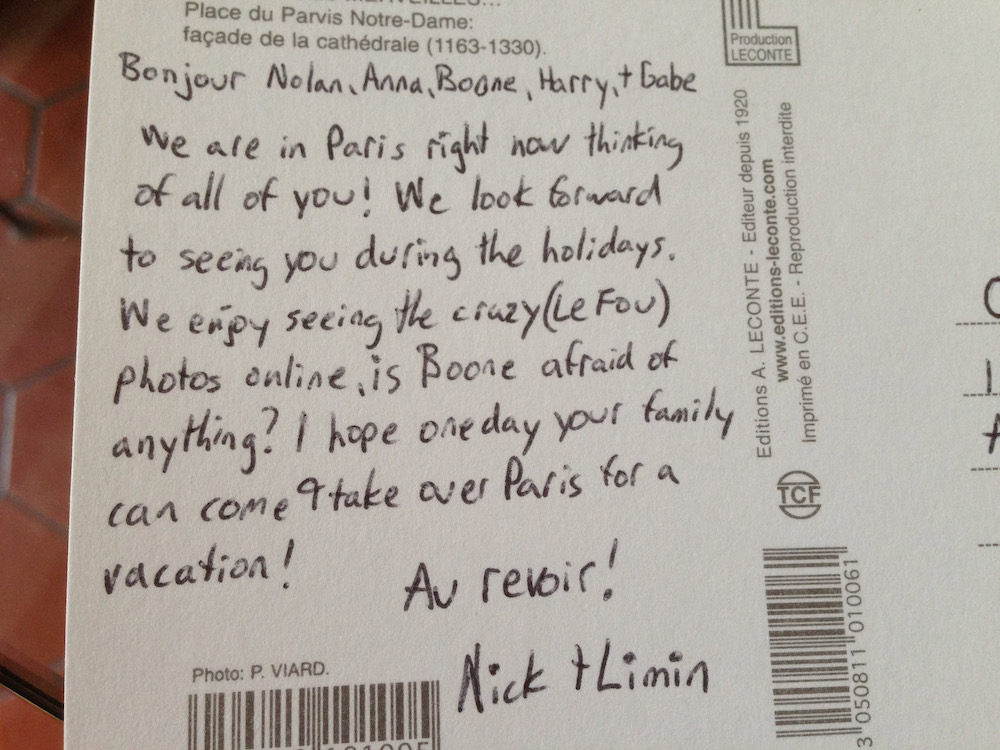 MERVEILLES...
Place du Parvis Notre-Dame:
façade de la cathédrale (1163-1330).
Bonjour Nolan, Anna, Boone, Harry, + Gabe
We are in Paris right now thinking
of all of you! We look forward
to seeing you during the holidays.
We enjoy seeing the crazy (Le Fou)
photos online, is Boone afraid of
anything? I hope one day your family
can come & take over Paris for a
vacation!
Au revoir!
Nick + Limin
Photo: P. VIARD.
Production
LECONTE
Editions A. LECONTE - Editeur depuis 1920
www.editions-leconte.com
Imprimé en C.E.E. - Reproduction interdite
TCF
3 050811 010061